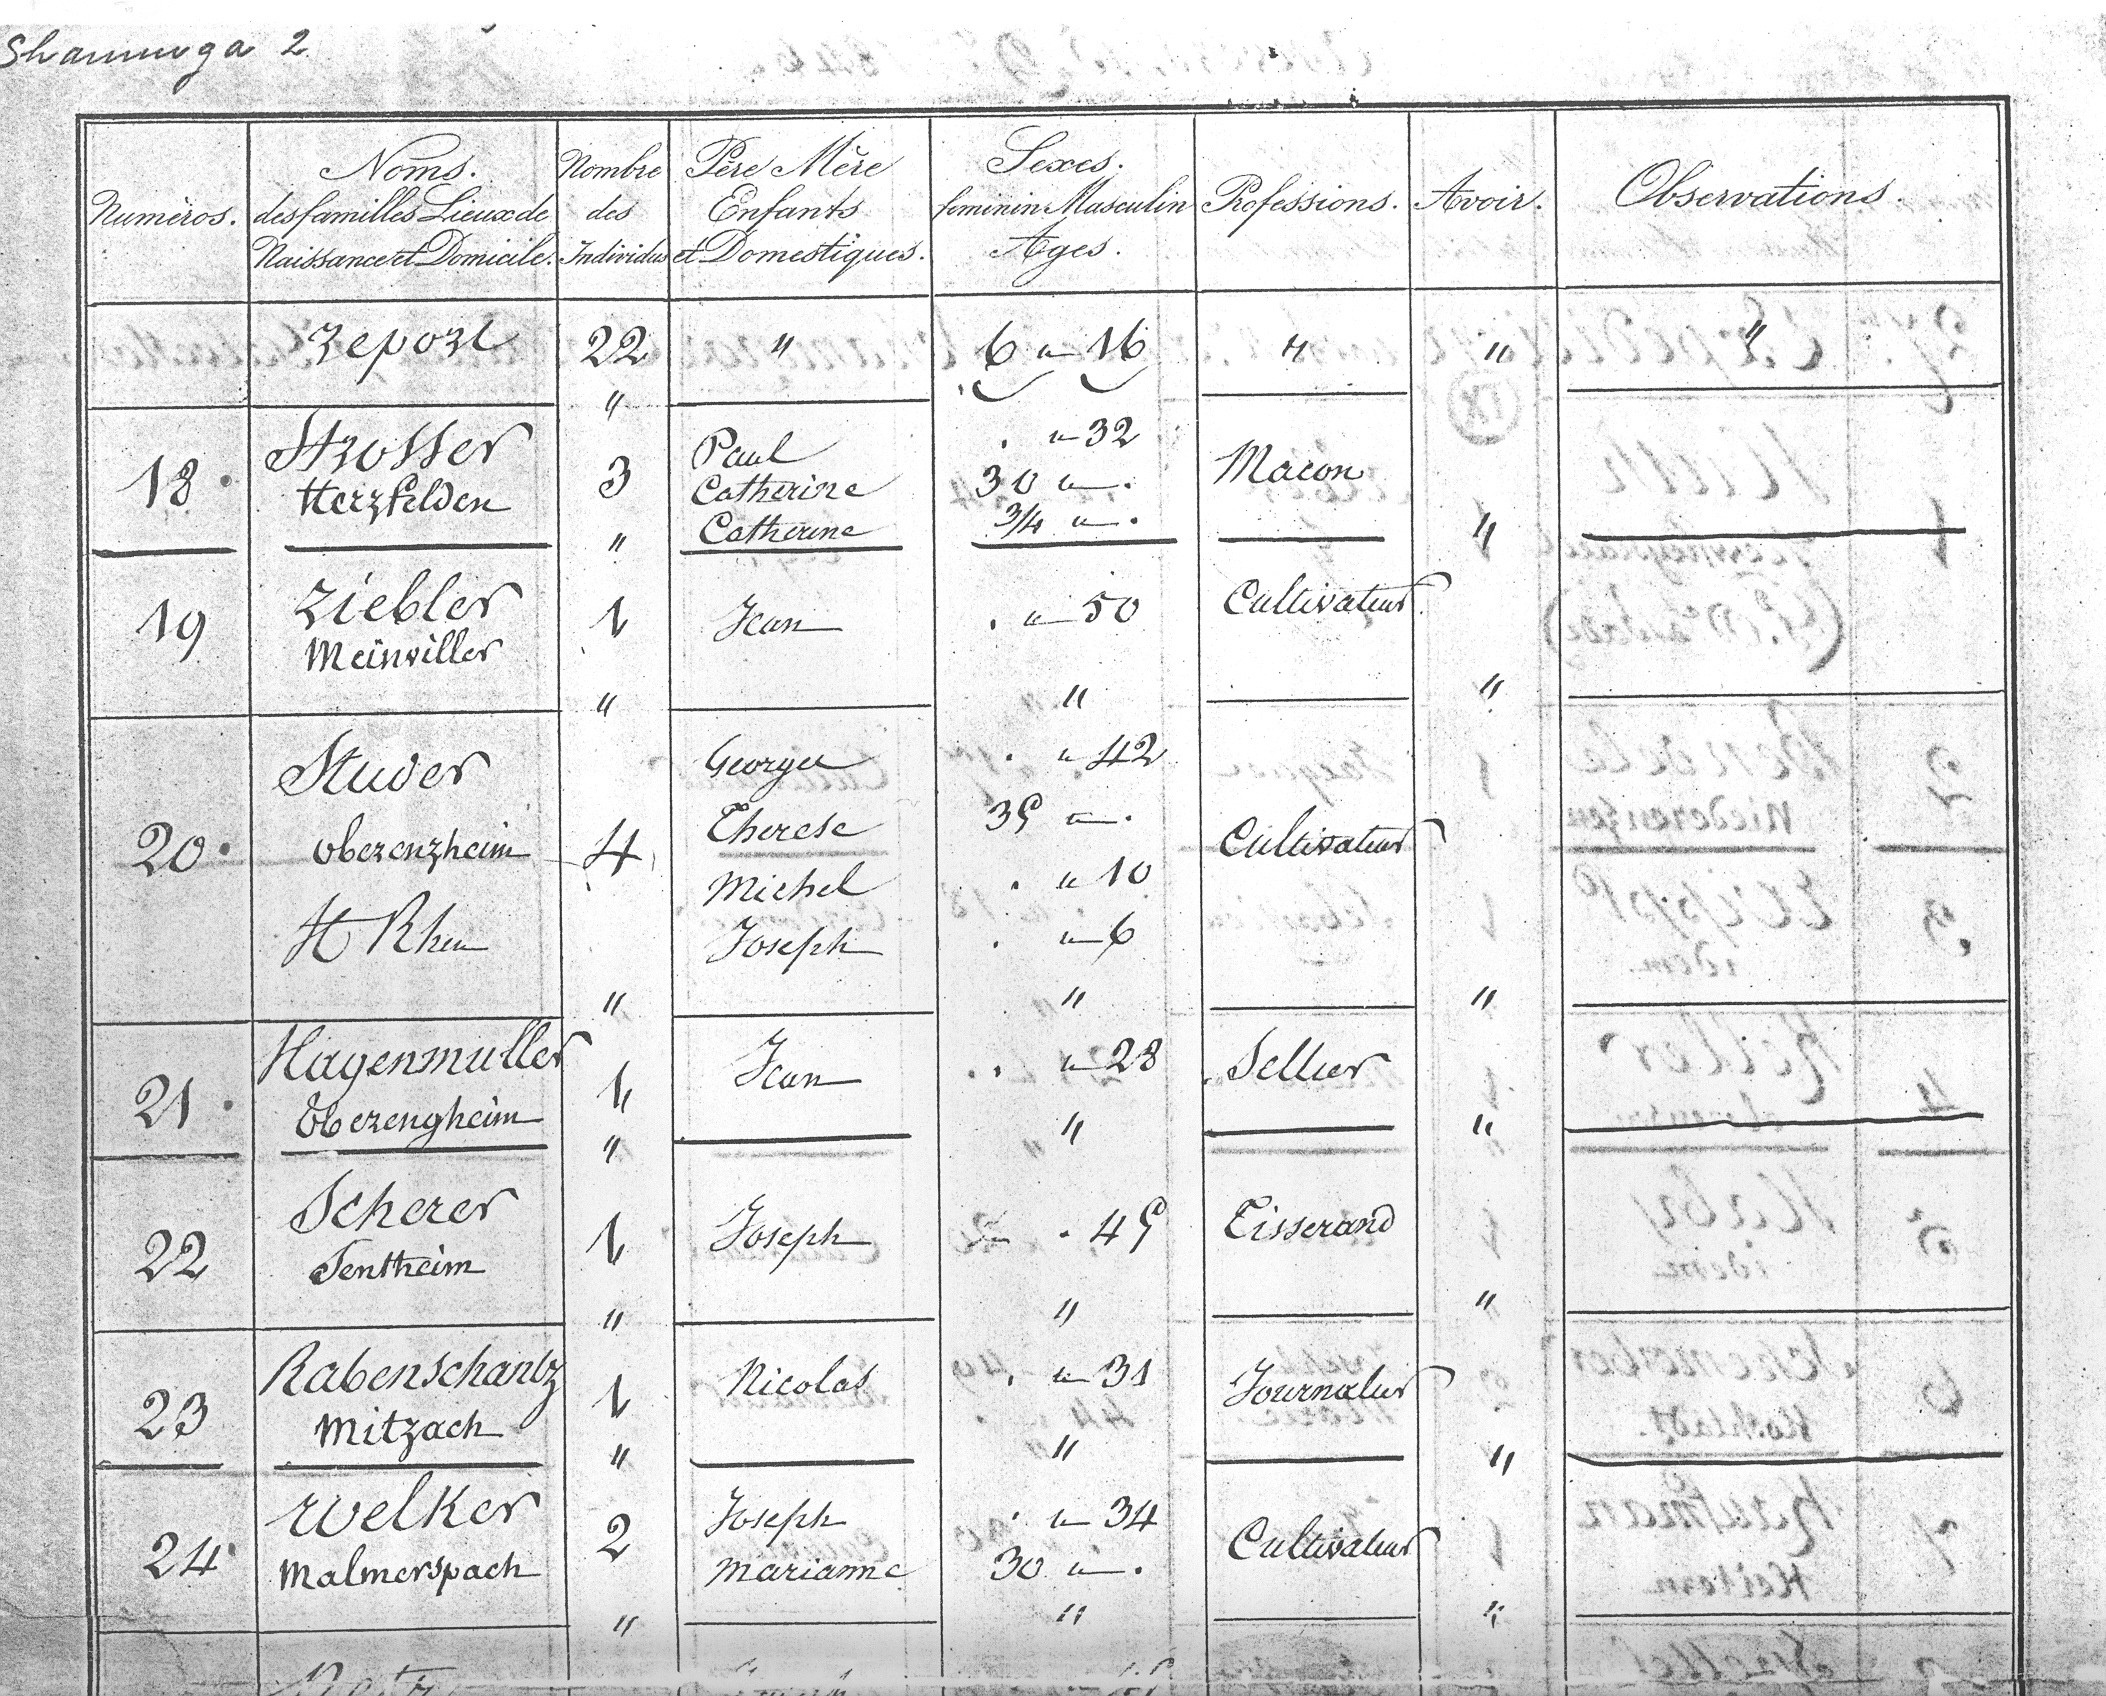 Shanunga 2
Numéros. Noms. des familles Lieux de Naissance et Domicile. Nombre des Individus Père Mère Enfants et Domestiques. Sexes. feminin Masculin Ages. Professions. Avoir. Observations.
report 22 " 6 " 16 " " "
"
18. Strosser 3 Paul . " 32 Macon
Herzfelden Catherine 30 " .
" Catherine 3/4 " . "
19 Ziebler 1 Jean . " 50 Cultivateur
Meinviller
" " "
20. Studer 4 George . " 42 Cultivateur
oberenzheim Therese 35 " .
Michel . " 10
H Rhin Joseph . " 6
" " "
21. Hagenmuller 1 Jean . " 28 Sellier
Oberengheim " " "
22 Scherer 1 Joseph " . 45 Tisserand
Sentheim
" " "
23 Rabenschantz 1 Nicolas . " 31 Journalier
Mitzach
" " "
24 Welker 2 Joseph . " 34 Cultivateur
Malmerspach Marianne 30 " .
" " "